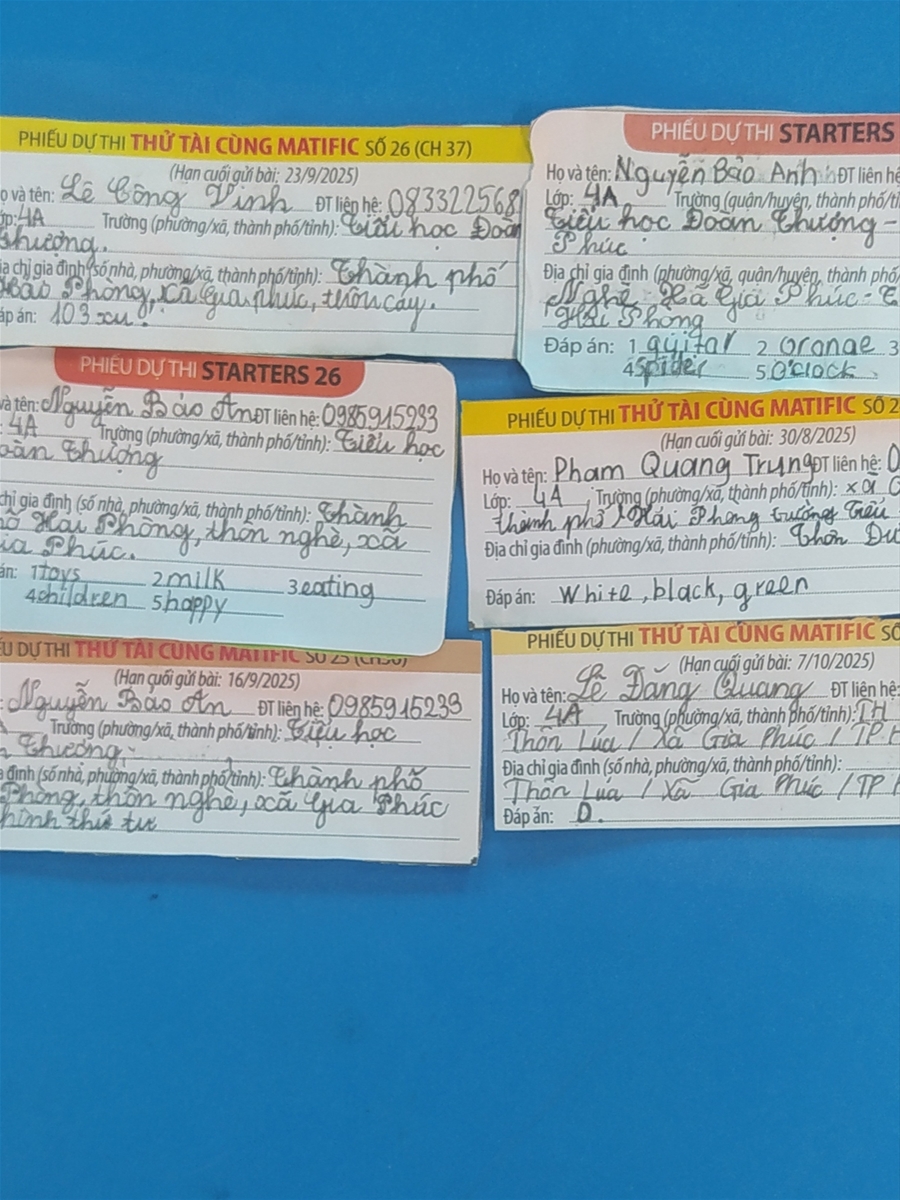 PHIẾU DỰ THI THỬ TÀI CÙNG MATIFIC SỐ 26 (CH 37)
(Hạn cuối gửi bài: 23/9/2025)
ọ và tên: Lê Công Vinh ĐT liên hệ: 083322568
ớp: 4A Trường (phường/xã, thành phố/tỉnh): Tiểu học Đoàn
Thượng.
ịa chỉ gia đình (số nhà, phường/xã, thành phố/tỉnh): Thành phố
Phòng, xã Gia phúc, thôn cáy.
áp án: 103 xu.
PHIẾU DỰ THI STARTERS
Họ và tên: Nguyễn Bảo Anh ĐT liên hệ
Lớp: 4A Trường (quận/huyện, thành phố/tỉ
Tiểu học Đoàn Thượng -
Phúc
Địa chỉ gia đình (phường/xã, quận/huyện, thành phố/
Nghê - Xã Gia Phúc - T
Hải Phòng
Đáp án: 1 guitar 2 orange 3
4 spider 5 O'clock
PHIẾU DỰ THI STARTERS 26
và tên: Nguyễn Bảo An ĐT liên hệ: 0985915233
: 4A Trường (phường/xã, thành phố/tỉnh): Tiểu học
oàn Thượng
chỉ gia đình (số nhà, phường/xã, thành phố/tỉnh): Thành
hố Hải Phòng, thôn nghê, xã
ia Phúc.
án: 1 toys 2 milk 3 eating
4 children 5 happy
PHIẾU DỰ THI THỬ TÀI CÙNG MATIFIC SỐ 2
(Hạn cuối gửi bài: 30/8/2025)
Họ và tên: Phạm Quang Trung ĐT liên hệ: 0
Lớp: 4A Trường (phường/xã, thành phố/tỉnh): xã G
thành phố Hải Phòng trường Tiểu
Địa chỉ gia đình (phường/xã, thành phố/tỉnh): Thôn Dư
Đáp án: White, black, green
ẾU DỰ THI THỬ TÀI CÙNG MATIFIC SỐ 25 (CH36)
(Hạn cuối gửi bài: 16/9/2025)
: Nguyễn Bảo An ĐT liên hệ: 0985915239
Trường (phường/xã, thành phố/tỉnh): Tiểu học
n Thượng.
a đình (số nhà, phường/xã, thành phố/tỉnh): Thành phố
Phòng, thôn nghê, xã Gia Phúc
hình thứ tư
PHIẾU DỰ THI THỬ TÀI CÙNG MATIFIC SỐ
(Hạn cuối gửi bài: 7/10/2025)
Họ và tên: Lê Đăng Quang ĐT liên hệ:
Lớp: 4A Trường (phường/xã, thành phố/tỉnh): TH
Thôn Lúa / Xã Gia Phúc / TP H
Địa chỉ gia đình (số nhà, phường/xã, thành phố/tỉnh):
Thôn Lúa / Xã Gia Phúc / TP H
Đáp án: D.